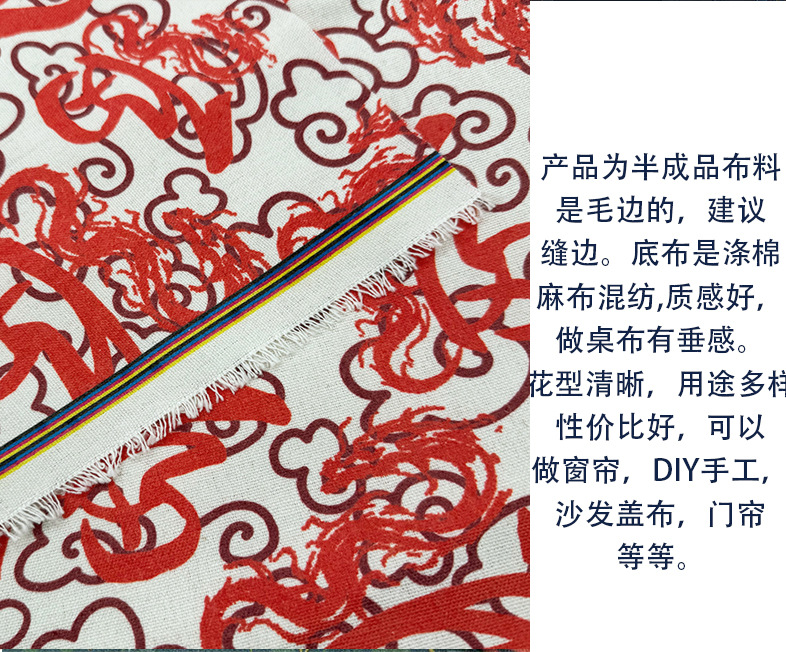 产品为半成品布料
是毛边的，建议
缝边。底布是涤棉
麻布混纺,质感好，
做桌布有垂感。
花型清晰，用途多样
性价比好，可以
做窗帘，DIY手工，
沙发盖布，门帘
等等。